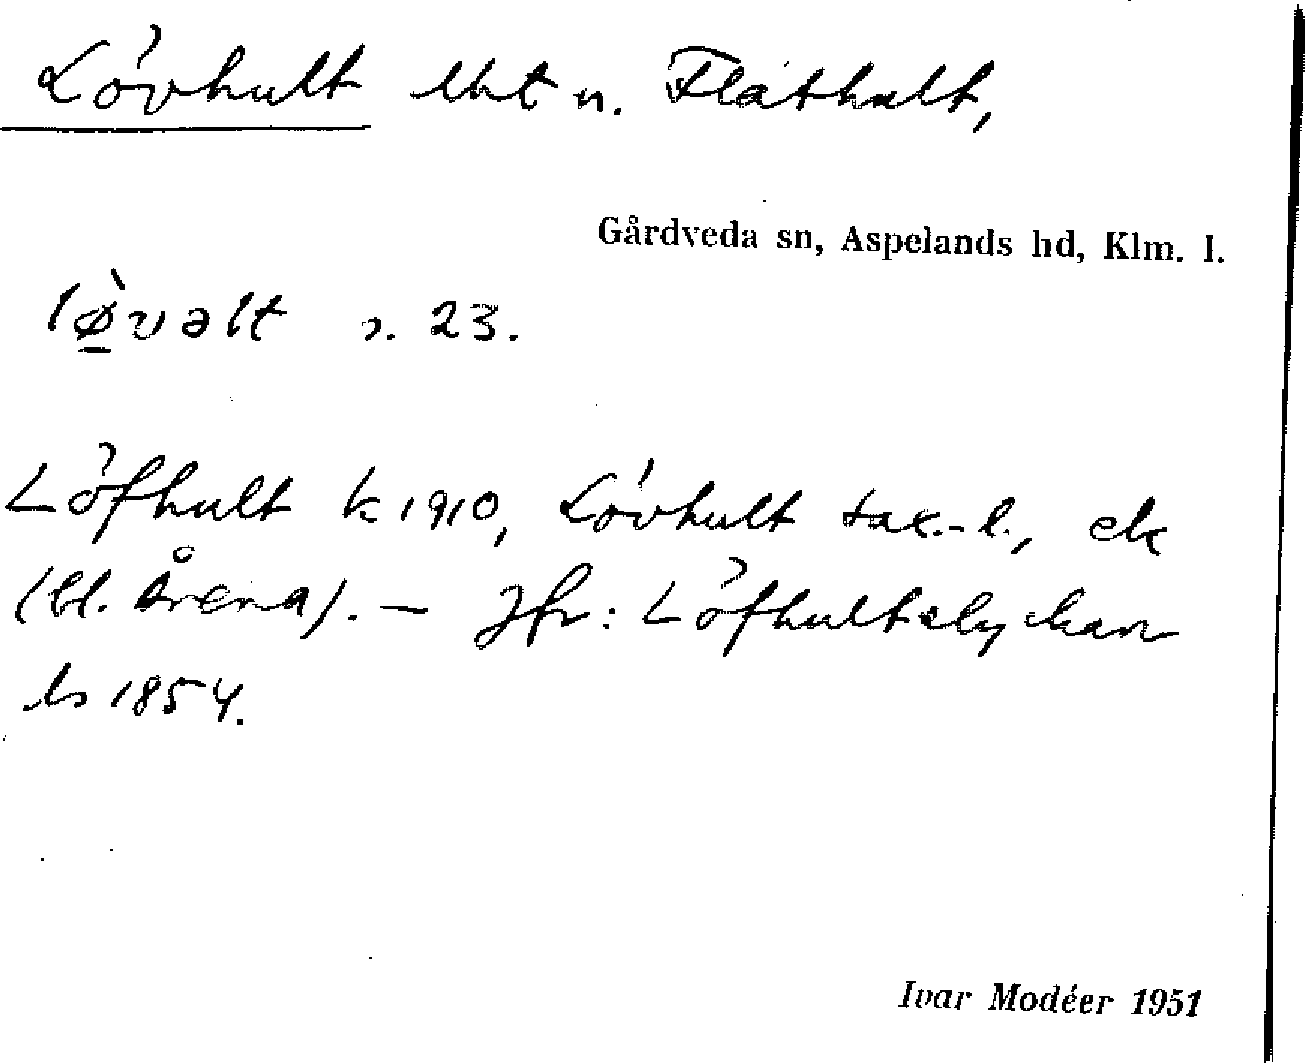 Lövhult lht u. Flathult,
Gårdveda sn, Aspelands hd, Klm. l.
lø̠̀vəlt s. 23.
Löfhult k 1910, Lövhult tax.-l., ek
(bl. Årena). — Jfr: Löfhultslyckan
ls 1854.
Ivar Modéer 1951